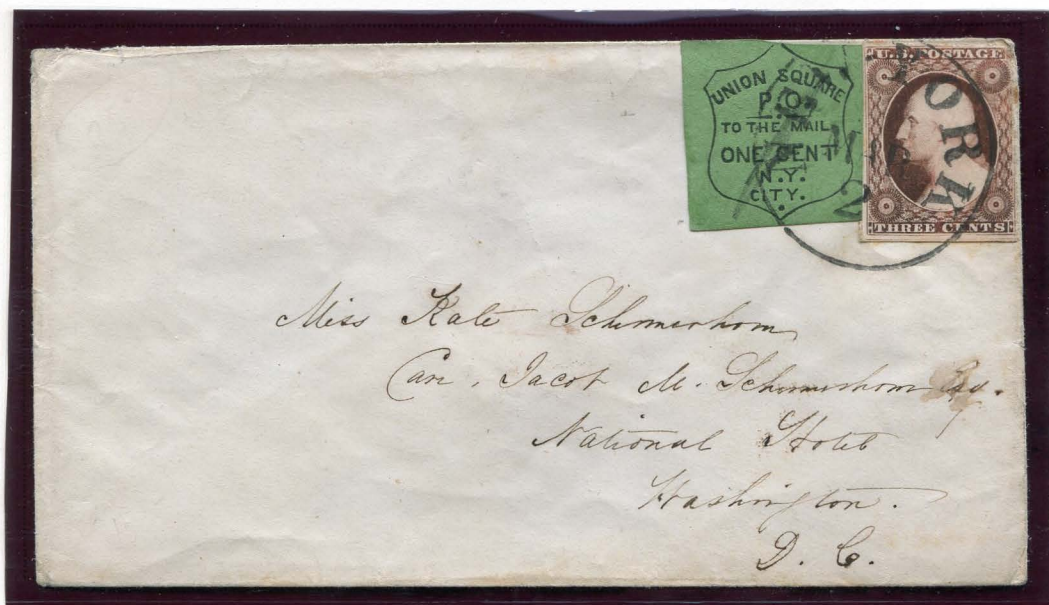 UNION SQUARE
P.O.
TO THE MAIL
ONE CENT
N.Y.
CITY.
U.S. POSTAGE
THREE CENTS
YORK
2
Miss Kate Schermerhorn
Care. Jacob M. Schermerhorn Esq.
National Hotel
Washington.
D. C.